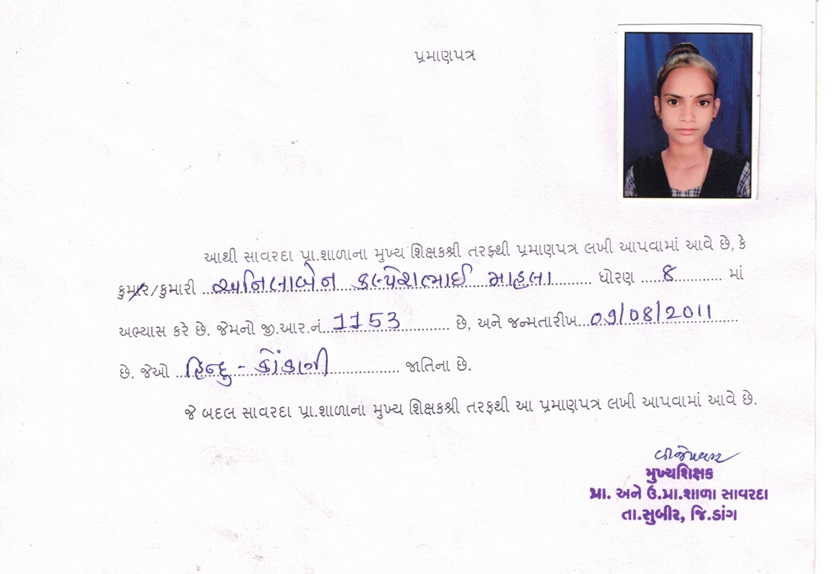 પ્રમાણપત્ર
આથી સાવરદા પ્રા.શાળાના મુખ્ય શિક્ષકશ્રી તરફથી પ્રમાણપત્ર લખી આપવામાં આવે છે, કે
કુમાર/કુમારી અનિલાબેન કલ્પેશભાઈ માહલા ધોરણ 8 માં
અભ્યાસ કરે છે. જેમનો જી.આર.નં 1153 છે, અને જન્મતારીખ 09/08/2011
છે. જેઓ હિન્દુ - કોંકાની જાતિના છે.
જે બદલ સાવરદા પ્રા.શાળાના મુખ્ય શિક્ષકશ્રી તરફથી આ પ્રમાણપત્ર લખી આપવામાં આવે છે.
મુખ્યશિક્ષક
પ્રા. અને ઉ.પ્રા.શાળા સાવરદા
તા.સુબીર, જિ.ડાંગ